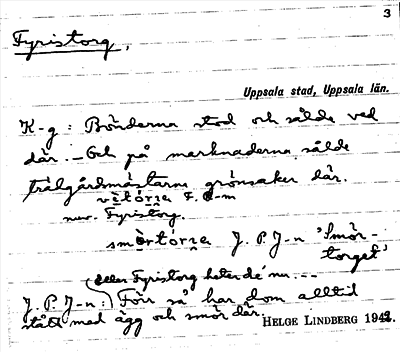 3
Fyristorg,
Uppsala stad, Uppsala län.
K-g: Bönderna stod och sålde ved
där. – Och på marknaderna sålde
trälgårdmästarna grönsaker där.
vètórję F. C-m
nuv. Fyristorg.
smörtórję J. P. J-n 'Smör-
torget'
(eller Fyristorg heter dé nu. --
J. P. J-n: Förr så har dom alltid
stått med ägg och smör där.
HELGE LINDBERG 1942.